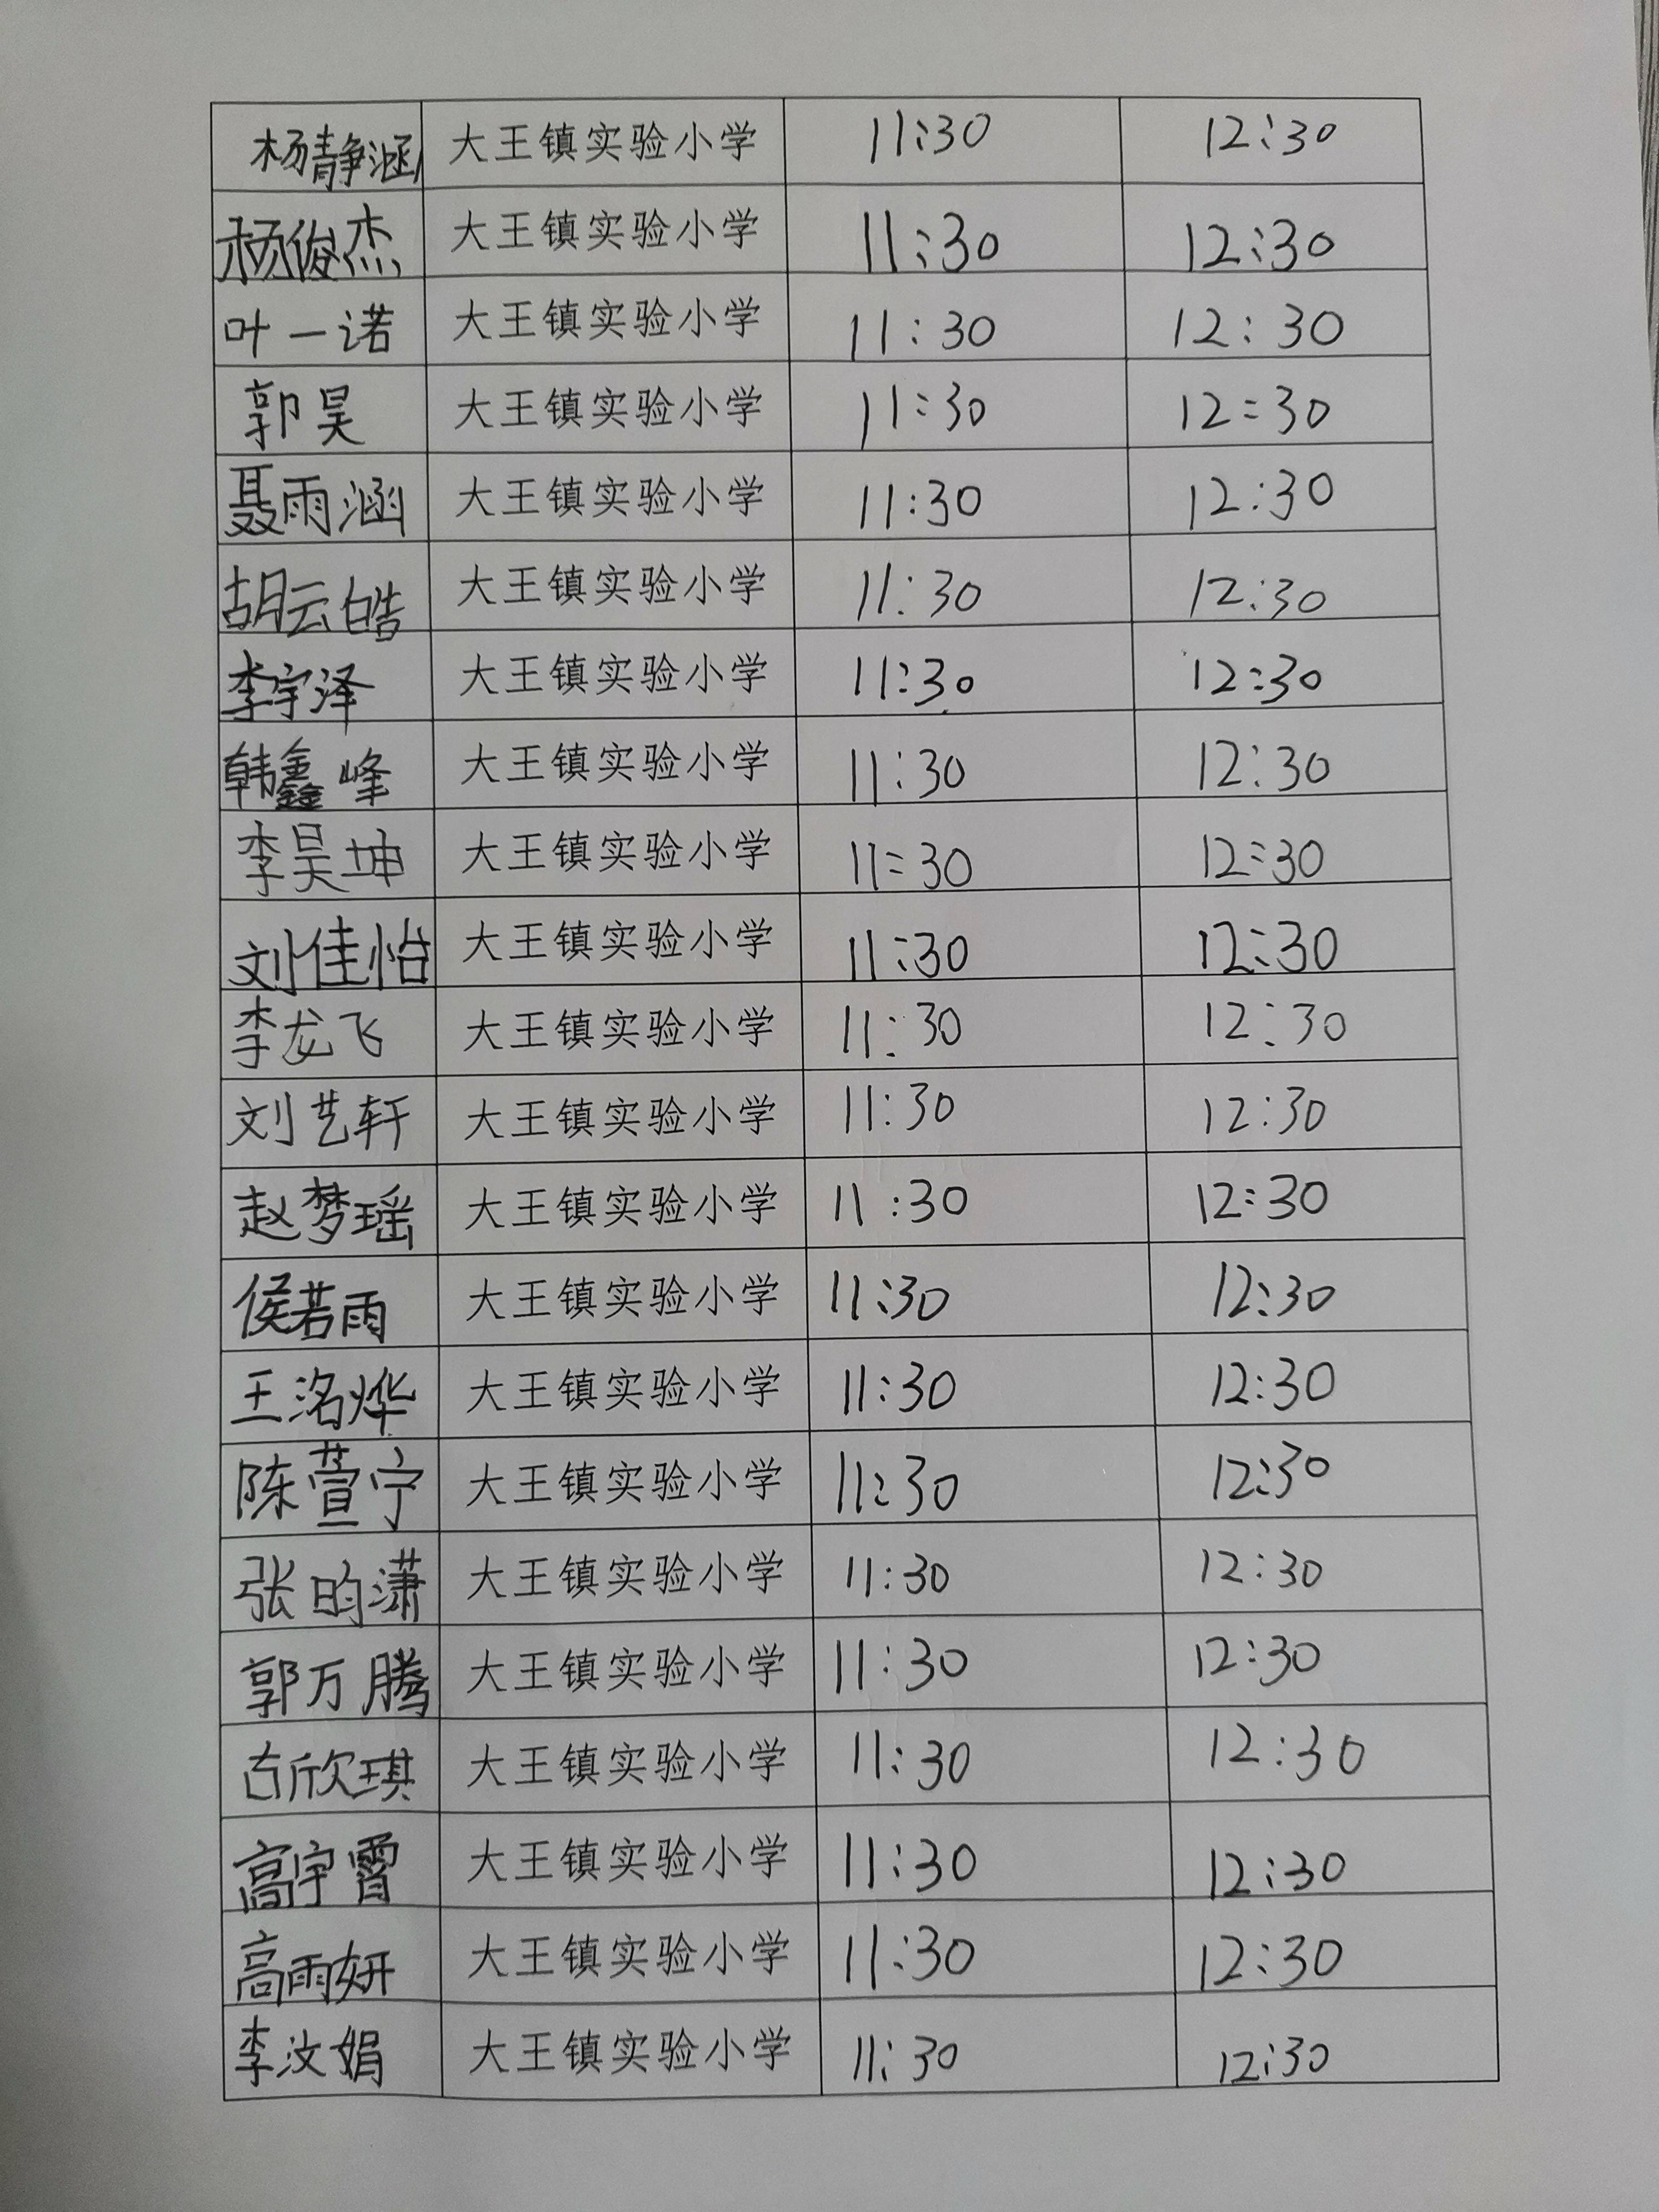 杨静涵 大王镇实验小学 11:30 12:30
杨俊杰 大王镇实验小学 11:30 12:30
叶一诺 大王镇实验小学 11:30 12:30
郭昊 大王镇实验小学 11:30 12:30
聂雨涵 大王镇实验小学 11:30 12:30
胡云皓 大王镇实验小学 11:30 12:30
李宇泽 大王镇实验小学 11:30 12:30
韩鑫峰 大王镇实验小学 11:30 12:30
李昊坤 大王镇实验小学 11:30 12:30
刘佳怡 大王镇实验小学 11:30 12:30
李龙飞 大王镇实验小学 11:30 12:30
刘艺轩 大王镇实验小学 11:30 12:30
赵梦瑶 大王镇实验小学 11:30 12:30
侯若雨 大王镇实验小学 11:30 12:30
王洺烨 大王镇实验小学 11:30 12:30
陈萱宁 大王镇实验小学 11:30 12:30
张昀潇 大王镇实验小学 11:30 12:30
郭万腾 大王镇实验小学 11:30 12:30
欣琪 大王镇实验小学 11:30 12:30
高宇霄 大王镇实验小学 11:30 12:30
高雨妍 大王镇实验小学 11:30 12:30
李汶娟 大王镇实验小学 11:30 12:30